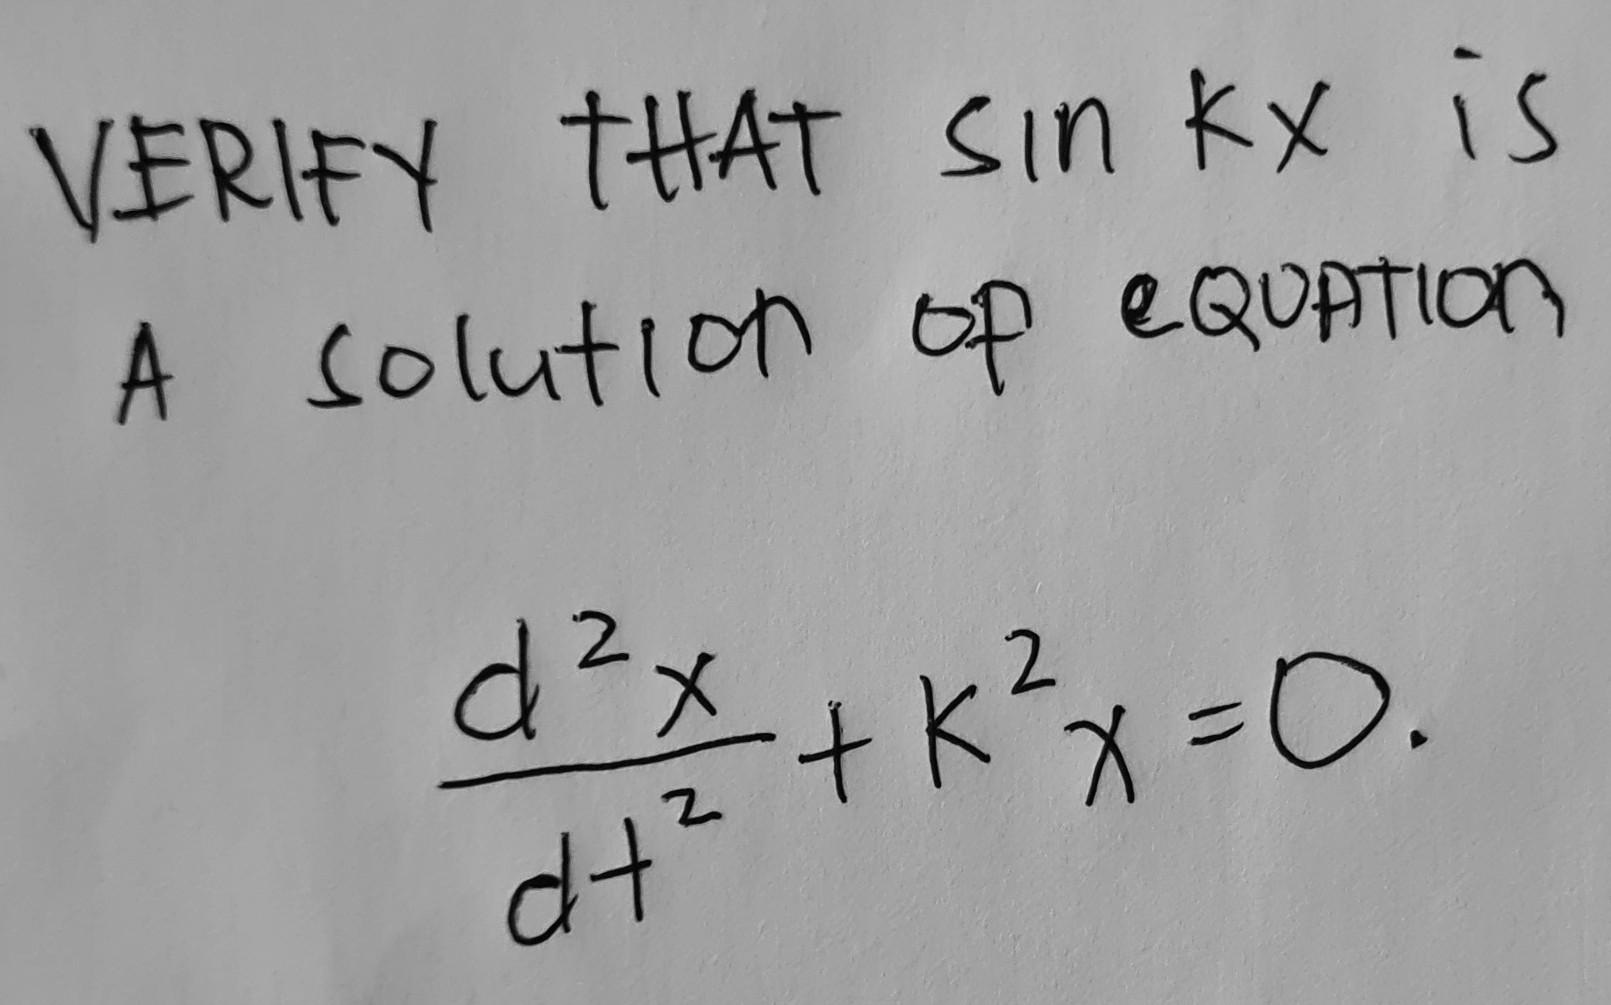 VERIFY THAT sin kx is
A solution of eQUATION
d²x/dt² + k²x = 0.